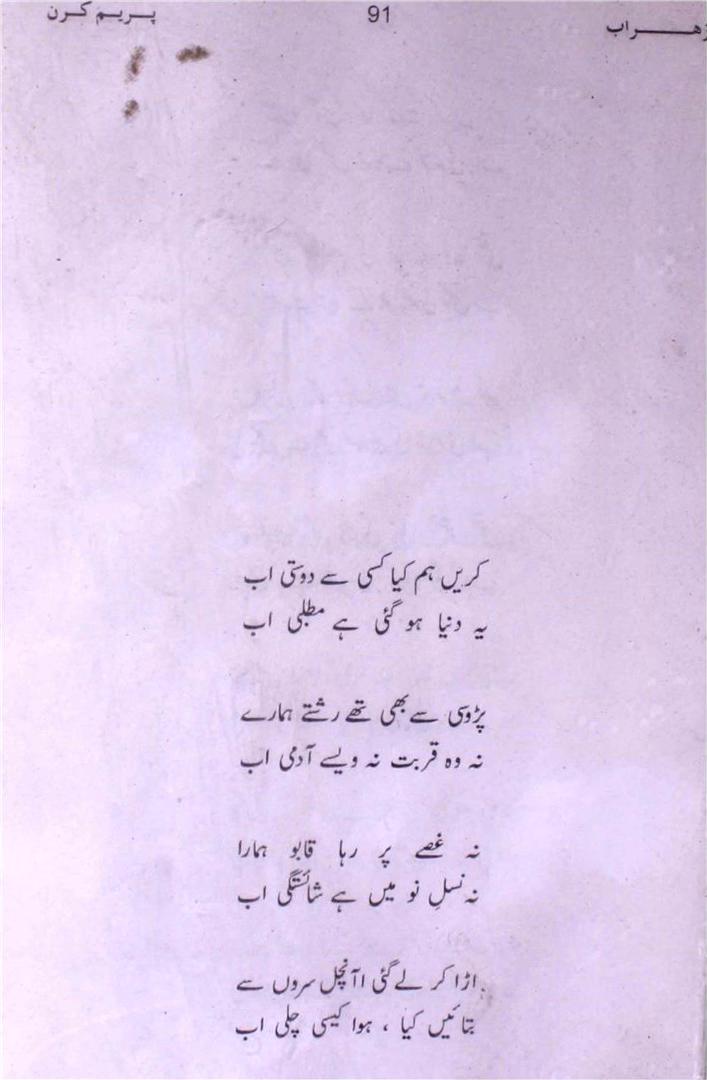 زهراب 91 پریم کرن
کریں ہم کیا کسی سے دوستی اب
یہ دنیا ہو گئی ہے مطلبی اب
پڑوسی سے بھی تھے رشتے ہمارے
نہ وہ قربت نہ ویسے آدمی اب
نہ غصے پر رہا قابو ہمارا
نہ نسلِ نو میں ہے شائستگی اب
اڑا کر لے گئی اآنچل سروں سے
بتائیں کیا ، ہوا کیسی چلی اب